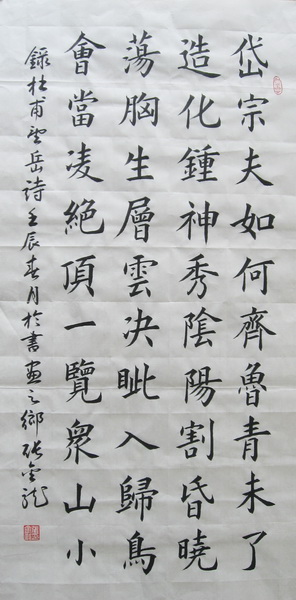 岱宗夫如何齊魯青未了
造化鍾神秀陰陽割昏曉
蕩胸生層雲決眦入歸鳥
會當凌絕頂一覽衆山小
錄杜甫望岳詩壬辰春月於書畫之鄉張金龍